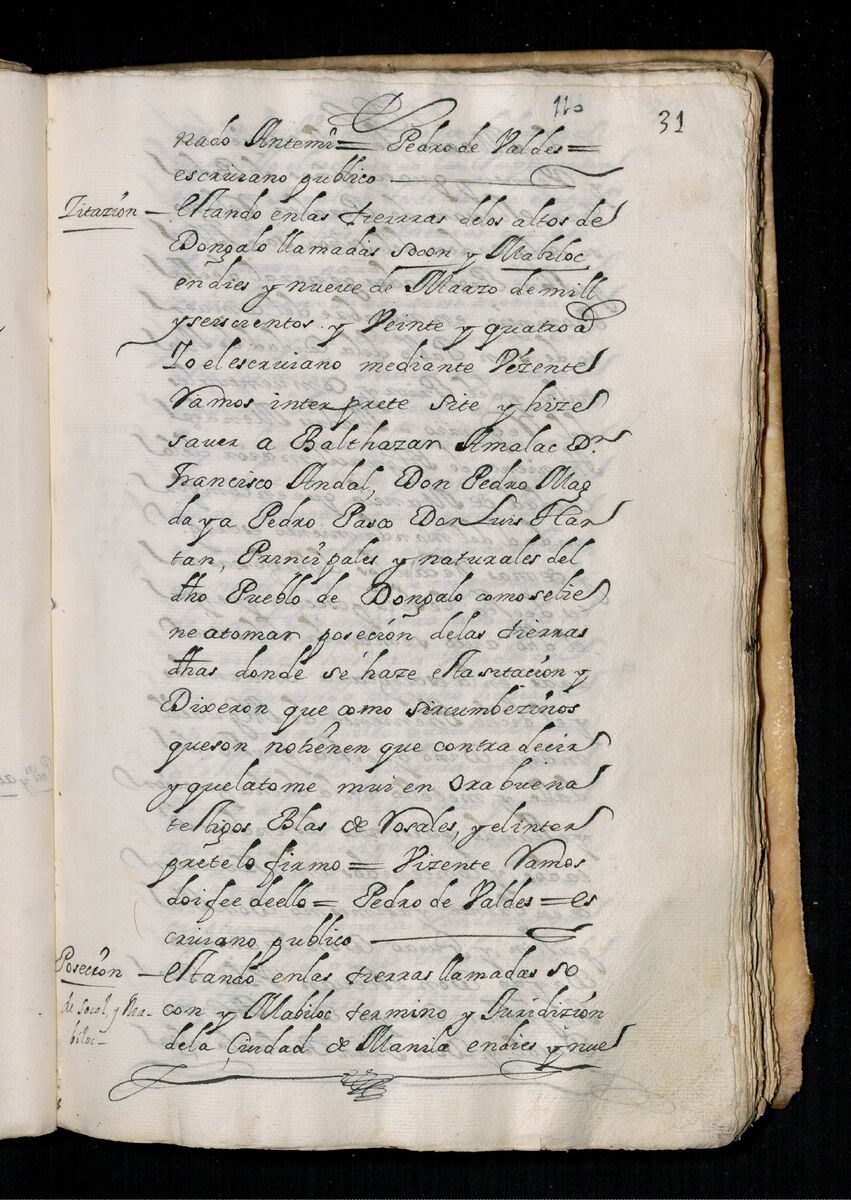 110
31
nado Antemi = Pedro de Valdes =
escriuano publico
Zitazion — estando enlas tierrras delos altos de
Dongalo llamadas socon y Mabiloc
en dies y nueve de Marzo demill
y seiscientos y Veinte y quatro a
Yo el escriuano mediante Vizente
Ramos interprete Site y hize
sauer a Balthazar Amalac Dn
Francisco Andal, Don Pedro Mag
daya Pedro Pasco Don Luis Har
tan, Principales y naturales del
dho Pueblo de Dongalo como sebie
ne atomar poseción delas tierras
dhas donde se haze esta sitación y
Dixeron que como sircumbezinos
queson notienen que contradecir
y quelatome mui en Orabuena
testigos Blas de Rosales, y el inter
prete lo firmo = Vizente Ramos
doi fee deello = Pedro de Valdes = es
criuano publico
Poseción — estando enlas tierras llamadas so
de socol, y Ma-
biloc-
con y Mabiloc termino y Juridizión
dela Ciudad de Manila en dies y nue